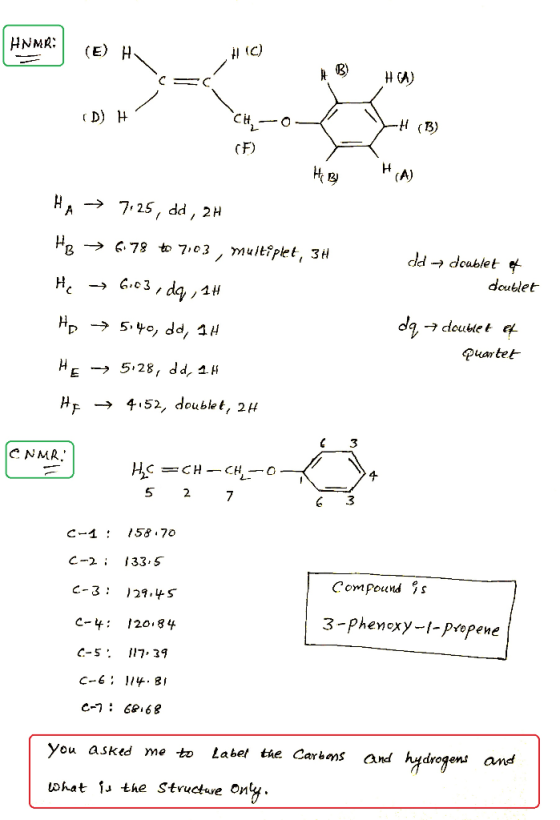 HNMR:
(E) H H (C)
H (B) H (A)
C=C
(D) H CH2-O -H (B)
(F)
H(B) H (A)
HA → 7.25, dd, 2H
HB → 6.78 to 7.03, multiplet, 3H
dd → doublet of
doublet
HC → 6.03, dq, 1H
HD → 5.40, dd, 1H
dq → doublet of
Quartet
HE → 5.28, dd, 1H
HF → 4.52, doublet, 2H
CNMR:
6 3
H2C=CH-CH2-O- 1 4
5 2 7
6 3
C-1 : 158.70
C-2 : 133.5
C-3 : 129.45
C-4 : 120.84
C-5 : 117.39
C-6 : 114.81
C-7 : 68.68
Compound is
3-phenoxy-1-propene
You asked me to Label the Carbons and hydrogens and
What is the Structure Only.